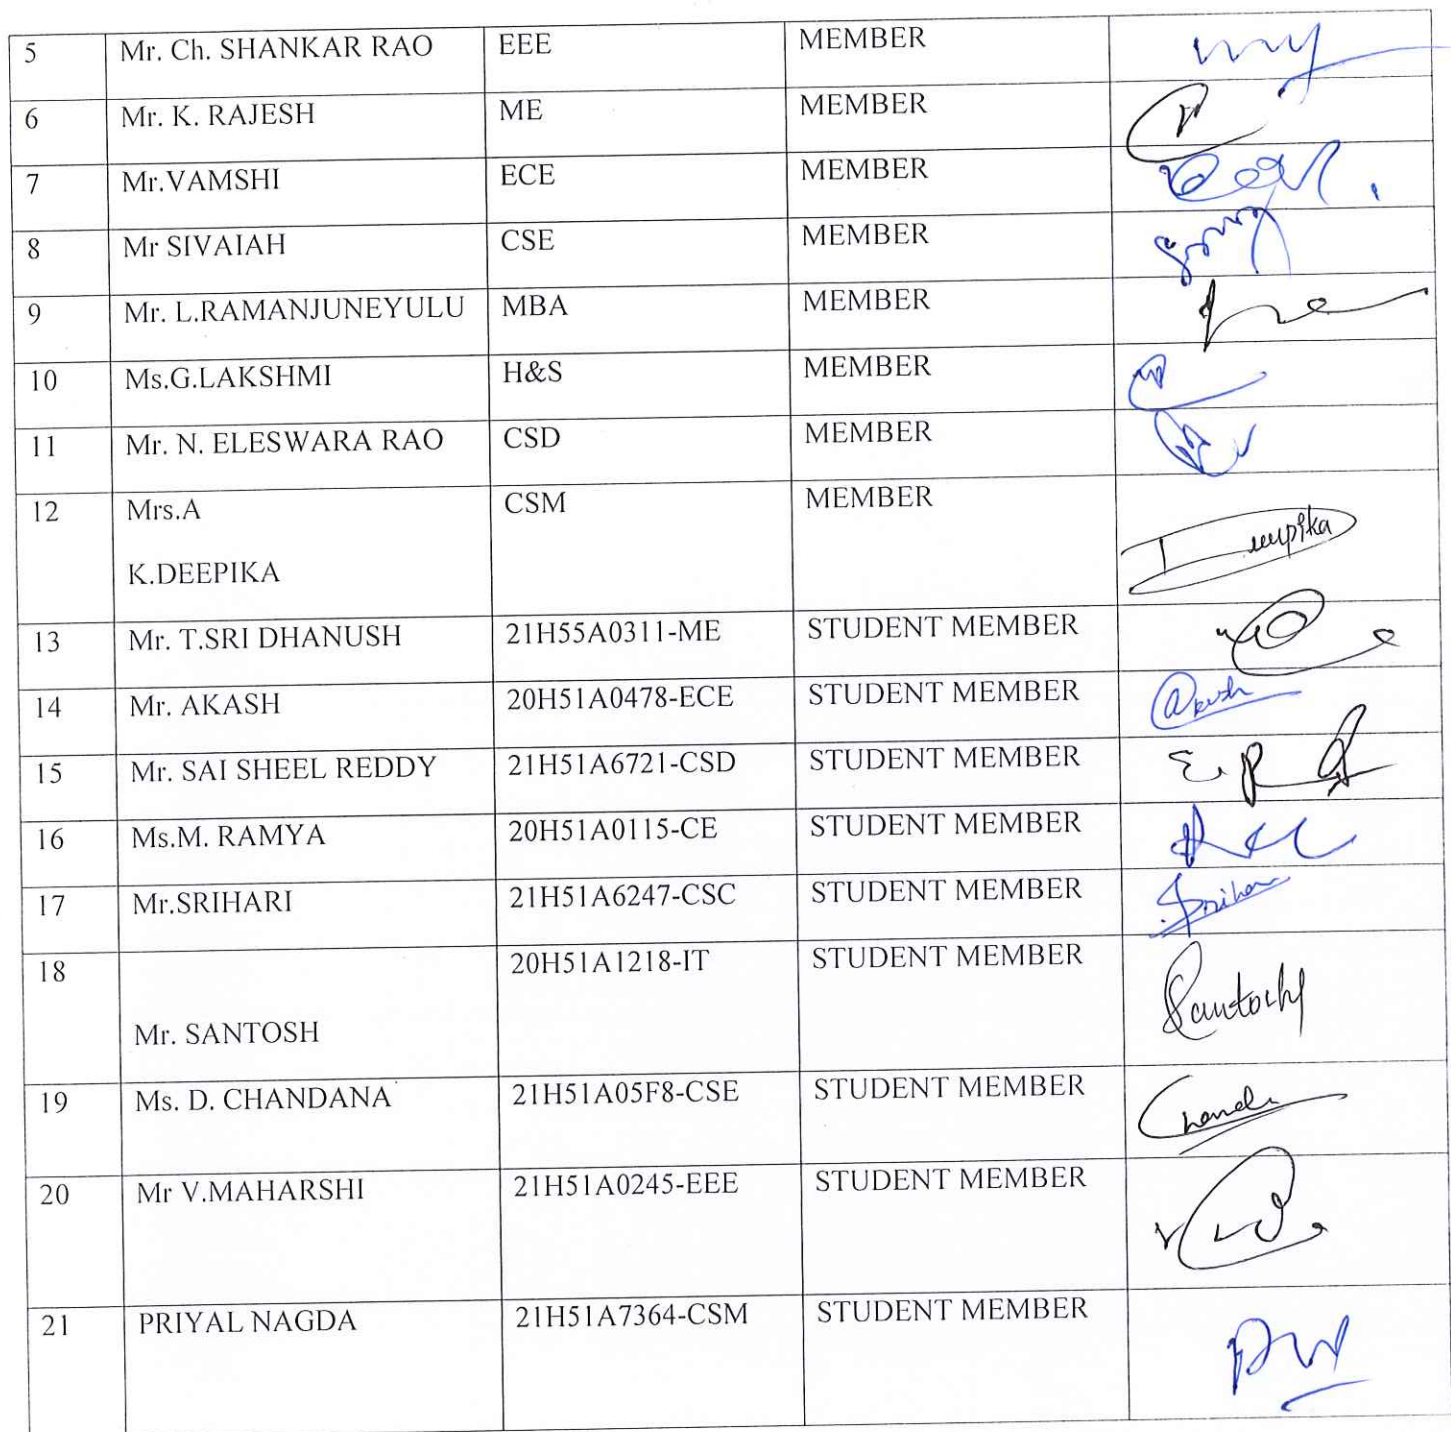 5 Mr. Ch. SHANKAR RAO EEE MEMBER
6 Mr. K. RAJESH ME MEMBER
7 Mr.VAMSHI ECE MEMBER
8 Mr SIVAIAH CSE MEMBER
9 Mr. L.RAMANJUNEYULU MBA MEMBER
10 Ms.G.LAKSHMI H&S MEMBER
11 Mr. N. ELESWARA RAO CSD MEMBER
12 Mrs.A CSM MEMBER
K.DEEPIKA Deepika
13 Mr. T.SRI DHANUSH 21H55A0311-ME STUDENT MEMBER
14 Mr. AKASH 20H51A0478-ECE STUDENT MEMBER Akash
15 Mr. SAI SHEEL REDDY 21H51A6721-CSD STUDENT MEMBER
16 Ms.M. RAMYA 20H51A0115-CE STUDENT MEMBER
17 Mr.SRIHARI 21H51A6247-CSC STUDENT MEMBER
18 20H51A1218-IT STUDENT MEMBER Santosh
Mr. SANTOSH
19 Ms. D. CHANDANA 21H51A05F8-CSE STUDENT MEMBER
20 Mr V.MAHARSHI 21H51A0245-EEE STUDENT MEMBER
21 PRIYAL NAGDA 21H51A7364-CSM STUDENT MEMBER